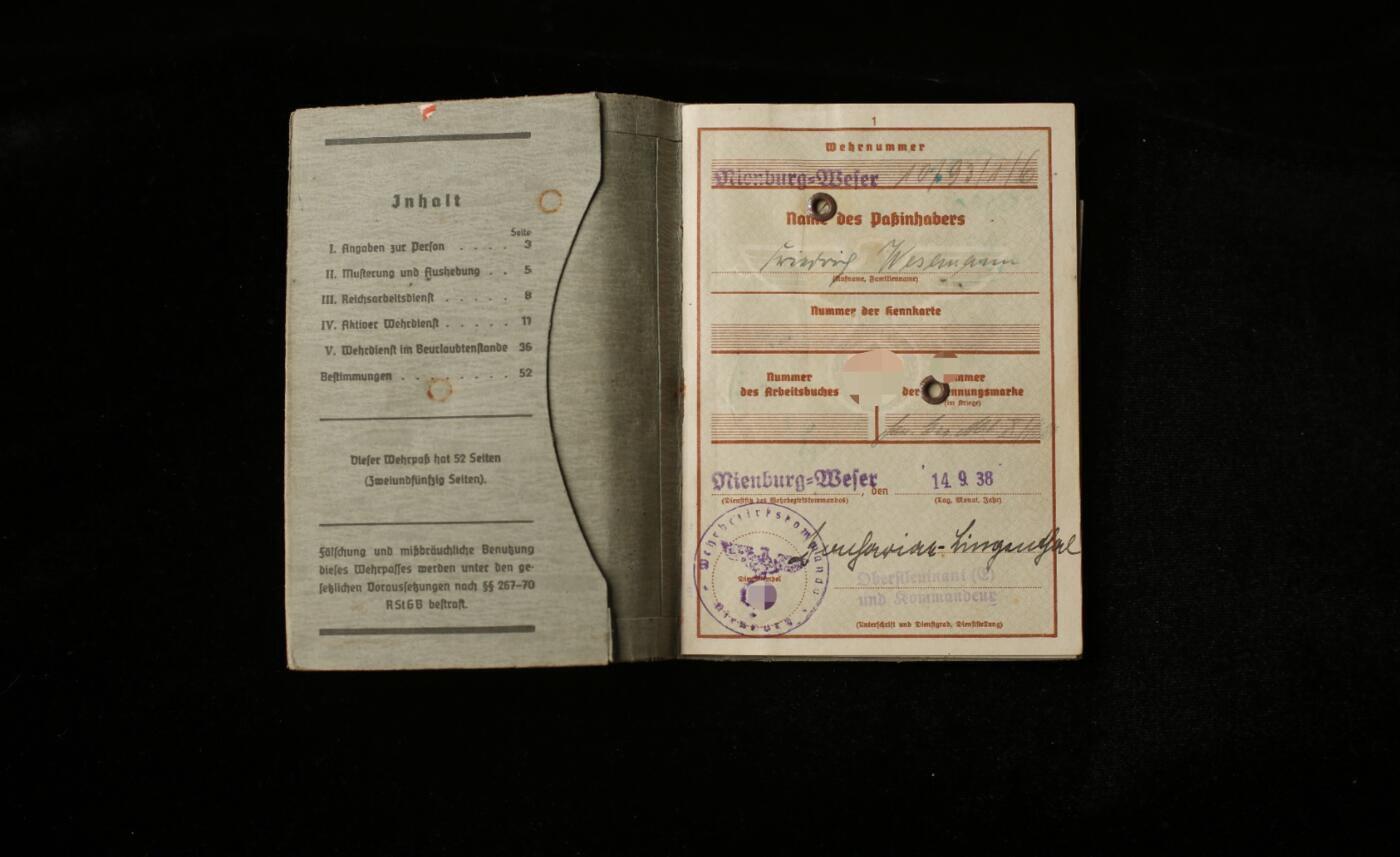 Inhalt
Seite
I. Angaben zur Person . . . . 3
II. Musterung und Aushebung . . 5
III. Reichsarbeitsdienst . . . . . 8
IV. Aktiver Wehrdienst . . . . . 11
V. Wehrdienst im Beurlaubtenstande 36
Bestimmungen . . . . . . . . 52
Dieser Wehrpaß hat 52 Seiten
(Zweiundfünfzig Seiten).
Fälschung und mißbräuchliche Benutzung
dieses Wehrpasses werden unter den ge-
setzlichen Voraussetzungen nach §§ 267–70
RStGB bestraft.
1
Wehrnummer
Nienburg=Weser
Name des Paßinhabers
Friedrich Wesemann
(Rufname, Familienname)
Nummer der Kennkarte
Nummer
des Arbeitsbuches
der
(im Kriege)
Nienburg=Weser, den 14. 9. 38
(Dienstsitz des Wehrbezirkskommandos) (Tag, Monat, Jahr)
Wehrbezirkskommando
Nienburg
Dienststempel
Oberstleutnant (E)
und Kommandeur
(Unterschrift und Dienstgrad, Dienststellung)